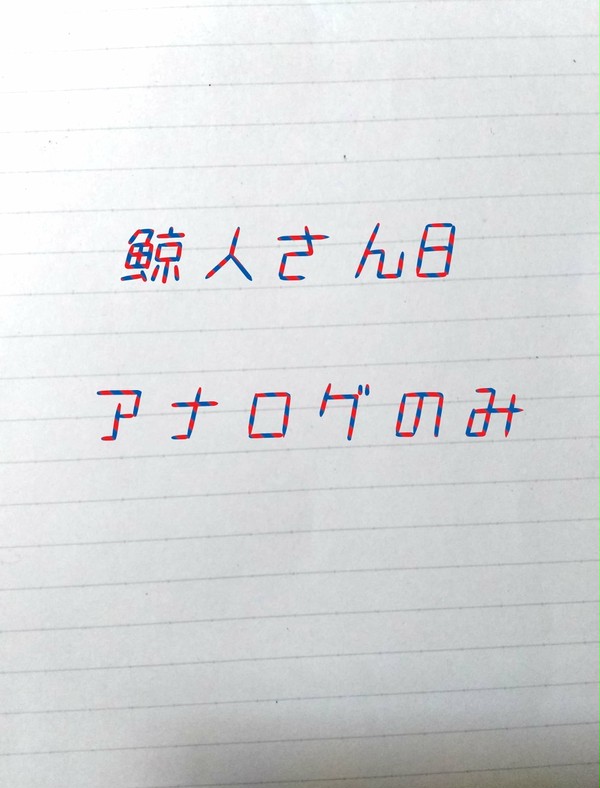 鯨人さん日
アナログのみ